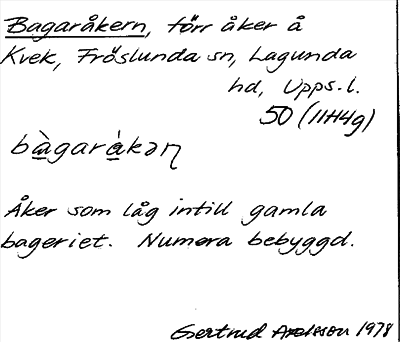 Bagaråkern, förr åker å
Kvek, Fröslunda sn, Lagunda
hd, Upps. l.
50 (11H4g)
bàgaràkəɳ
Åker som låg intill gamla
bageriet. Numera bebyggd.
Gertrud Axelsson 1978